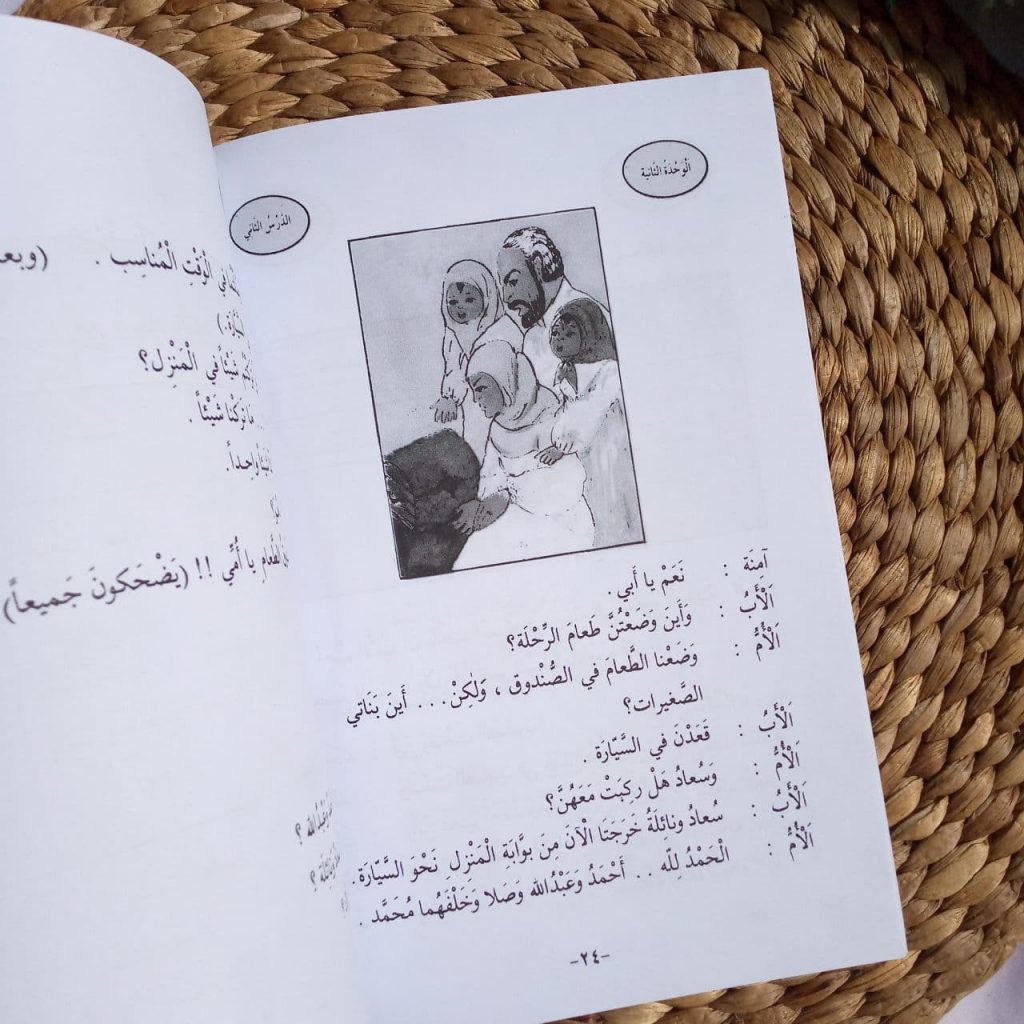 اَلْوَحْدَةُ الثَّانِيَة
الدَّرْسُ الثَّاني
آمِنَة : نَعَمْ يا أَبي.
اَلْأَبُ : وَأَينَ وَضَعْتُنَّ طَعامَ الرِّحْلَة؟
اَلْأُمُّ : وَضَعْنا الطَّعامَ في الصُّنْدوق ، وَلٰكِنْ... أَينَ بَنَاتي
الصَّغيرات؟
اَلْأَبُ : قَعَدْنَ في السَّيّارَة .
اَلْأُمُّ : وَسُعادُ هَلْ رَكِبَتْ مَعَهُنَّ؟
اَلْأَبُ : سُعادُ ونائِلَةُ خَرَجَتَا الْآنَ مِنَ بوَّابَةِ الْمَنْزِلِ نَحْوَ السَّيَّارَة.
اَلْأُمُّ : الْحَمْدُ لِلّه .. أَحْمَدُ وَعَبْدُالله وَصَلا وَخَلْفَهُما مُحَمَّد .
-٢٤-
في الْوَقْتِ الْمُناسِب . (وبعد
في الْمَنْزِل؟
مَا تَرَكْنا شَيْئاً .
واحِداً.
الطَّعامِ يا أُمّي !! (يَضْحَكونَ جَميعاً)